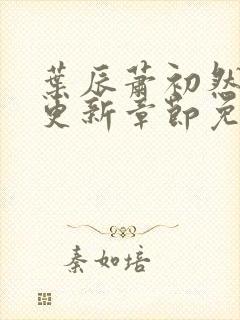 葉辰蕭初然
更新章節免
秦如培